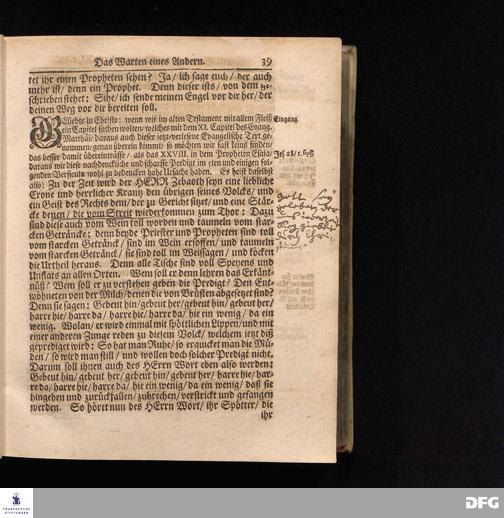 Das Warten eines Andern. 39
tet ihr einen Propheten sehen? Ja/ ich sage euch/ der auch
mehr ist/ denn ein Prophet. Denn dieser ists/ von dem ge-
schrieben stehet: Sihe/ ich sende meinen Engel vor dir her/ der
deinen Weg vor dir bereiten soll.
Geliebte in Christo: wenn wir im alten Testament mit allem Fleiß
ein Capitel suchen wolten/ welches mit dem XI. Capitel des Evang.
Matthäi/ daraus auch dieser jetzt-verlesene Evangelische Text ge-
nommen/ genau überein kommt/ so möchten wir fast keins finden/
das besser damit übereinträffe/ als das XXVIII. in dem Propheten Esaia/
daraus wir diese nachdenckliche und scharffe Predigt im 5ten und einigen fol-
genden Versiculn wohl zu bedencken hohe Ursache haben. Es heist daselbst
also: Zu der Zeit wird der HERR Zebaoth seyn eine liebliche
Crone und herrlicher Krantz den übrigen seines Volcks/ und
ein Geist des Rechts dem/ der zu Gericht sitzet/ und eine Stär-
cke denen/ die vom Streit wiederkommen zum Thor: Dazu
sind diese auch vom Wein toll worden und taumeln vom star-
cken Geträncke; denn beyde Priester und Propheten sind toll
vom starcken Getränck/ sind im Wein ersoffen/ und taumeln
vom starcken Getränck/ sie sind toll im Weissagen/ und köcken
die Urtheil heraus. Denn alle Tische sind voll Speyens und
Unflats an allen Orten. Wem soll er denn lehren das Erkänt-
nüß? Wem soll er zu verstehen geben die Predigt? Den Ent-
wöhneten von der Milch/ denen die von Brüsten abgesetzt sind?
Denn sie sagen: Gebeut hin/ gebeut her/ gebeut hin/ gebeut her/
harre hie/ harre da/ harre hie/ harre da/ hie ein wenig/ da ein
wenig. Wolan/ er wird einmal mit spöttlichen Lippen/ und mit
einer anderen Zunge reden zu diesem Volck/ welchem jetzt diß
geprediget wird: So hat man Ruhe/ so erquicket man die Mü-
den/ so wird man still/ und wollen doch solcher Predigt nicht.
Darum soll ihnen auch des HErrn Wort eben also werden:
Gebeut hin/ gebeut her/ gebeut hin/ gebeut her/ harre hie/ har-
re da/ harre hie/ harre da/ hie ein wenig/ da ein wenig/ daß sie
hingehen und zurückfallen/ zubrechen/ verstrickt und gefangen
werden. So höret nun des HErrn Wort/ ihr Spötter/ die
ihr
Eingang.
Jes. 28/
FRANCKESCHE
STIFTUNGEN
DFG